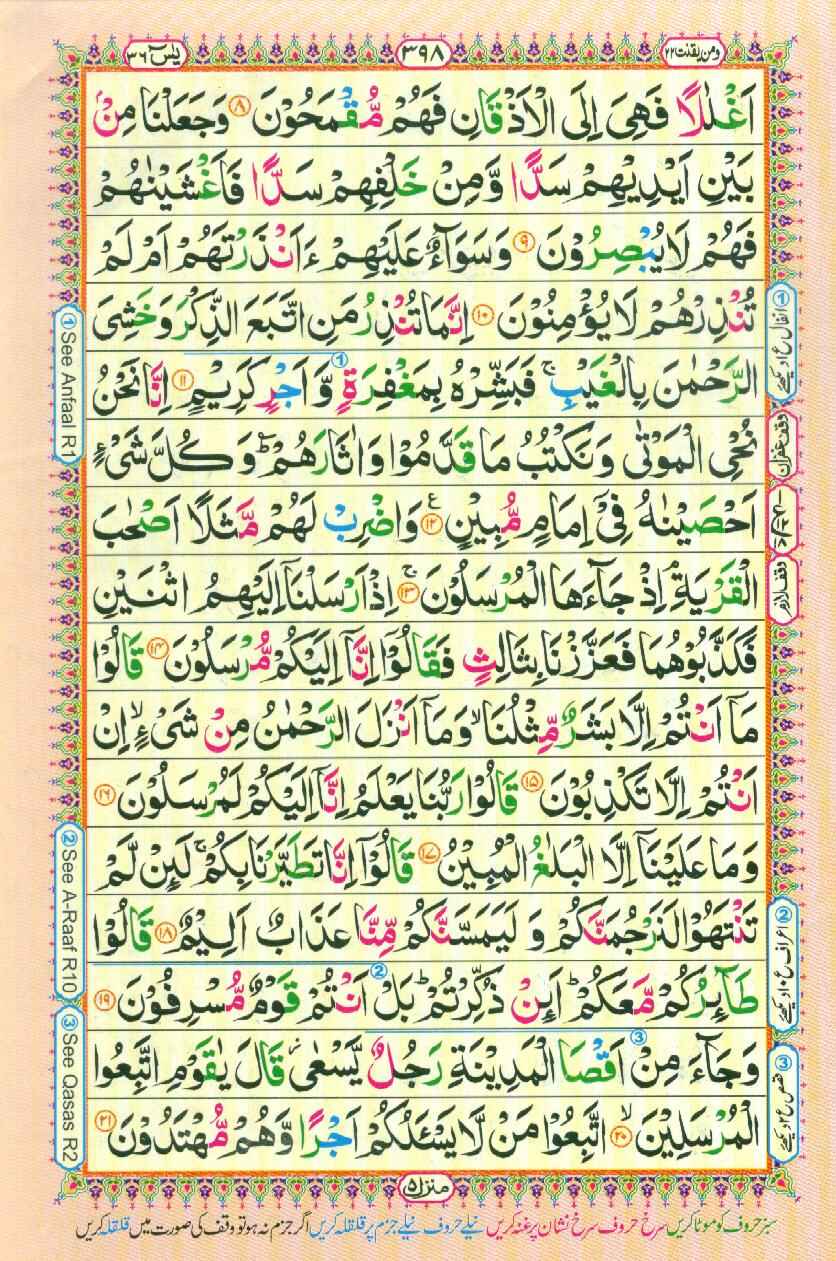 ومن یقنت ۲۲
۳۹۸
یٰسٓ ۳۶
اَغْلٰلًا فَهِیَ اِلَی الْاَذْقَانِ فَهُمْ مُّقْمَحُوْنَ ۸ وَجَعَلْنَا مِنْۢ
بَیْنِ اَیْدِیْهِمْ سَدًّا وَّمِنْ خَلْفِهِمْ سَدًّا فَاَغْشَیْنٰهُمْ
فَهُمْ لَا یُبْصِرُوْنَ ۹ وَسَوَآءٌ عَلَیْهِمْ ءَاَنْذَرْتَهُمْ اَمْ لَمْ
تُنْذِرْهُمْ لَا یُؤْمِنُوْنَ ۱۰ اِنَّمَا تُنْذِرُ مَنِ اتَّبَعَ الذِّكْرَ وَخَشِیَ
الرَّحْمٰنَ بِالْغَیْبِ ۚ فَبَشِّرْهُ بِمَغْفِرَةٍ وَّاَجْرٍ كَرِیْمٍ ۱۱ اِنَّا نَحْنُ
نُحْیِ الْمَوْتٰی وَنَكْتُبُ مَا قَدَّمُوْا وَاٰثَارَهُمْ ؕ وَكُلَّ شَیْءٍ
اَحْصَیْنٰهُ فِیْۤ اِمَامٍ مُّبِیْنٍ ۱۲ وَاضْرِبْ لَهُمْ مَّثَلًا اَصْحٰبَ
الْقَرْیَةِ ۘ اِذْ جَآءَهَا الْمُرْسَلُوْنَ ۱۳ اِذْ اَرْسَلْنَاۤ اِلَیْهِمُ اثْنَیْنِ
فَكَذَّبُوْهُمَا فَعَزَّزْنَا بِثَالِثٍ فَقَالُوْۤا اِنَّاۤ اِلَیْكُمْ مُّرْسَلُوْنَ ۱۴ قَالُوْا
مَاۤ اَنْتُمْ اِلَّا بَشَرٌ مِّثْلُنَا ۙ وَمَاۤ اَنْزَلَ الرَّحْمٰنُ مِنْ شَیْءٍ ۙ اِنْ
اَنْتُمْ اِلَّا تَكْذِبُوْنَ ۱۵ قَالُوْا رَبُّنَا یَعْلَمُ اِنَّاۤ اِلَیْكُمْ لَمُرْسَلُوْنَ ۱۶
وَمَا عَلَیْنَاۤ اِلَّا الْبَلٰغُ الْمُبِیْنُ ۱۷ قَالُوْۤا اِنَّا تَطَیَّرْنَا بِكُمْ ۚ لَئِنْ لَّمْ
تَنْتَهُوْا لَنَرْجُمَنَّكُمْ وَ لَیَمَسَّنَّكُمْ مِّنَّا عَذَابٌ اَلِیْمٌ ۱۸ قَالُوْا
طَآئِرُكُمْ مَّعَكُمْ ؕ اَئِنْ ذُكِّرْتُمْ ؕ بَلْ اَنْتُمْ قَوْمٌ مُّسْرِفُوْنَ ۱۹
وَجَآءَ مِنْ اَقْصَا الْمَدِیْنَةِ رَجُلٌ یَّسْعٰی ؗ قَالَ یٰقَوْمِ اتَّبِعُوا
الْمُرْسَلِیْنَ ۙ ۲۰ اتَّبِعُوْا مَنْ لَّا یَسْـَٔلُكُمْ اَجْرًا وَّهُمْ مُّهْتَدُوْنَ ۲۱
① انفال ع ۱ دیکھئے
وقف غفران
وقف لازم
② اعراف ع ۱۰ دیکھئے
③ قصص ع ۲ دیکھئے
① See Anfaal R1
② See A-Raaf R10
③ See Qasas R2
منزل ۵
سبز حروف کو موٹا کریں سرخ حروف سرخ نشان پر غنہ کریں نیلے حروف نیلے جزم پر قلقلہ کریں اگر جزم نہ ہو تو وقف کی صورت میں قلقلہ کریں